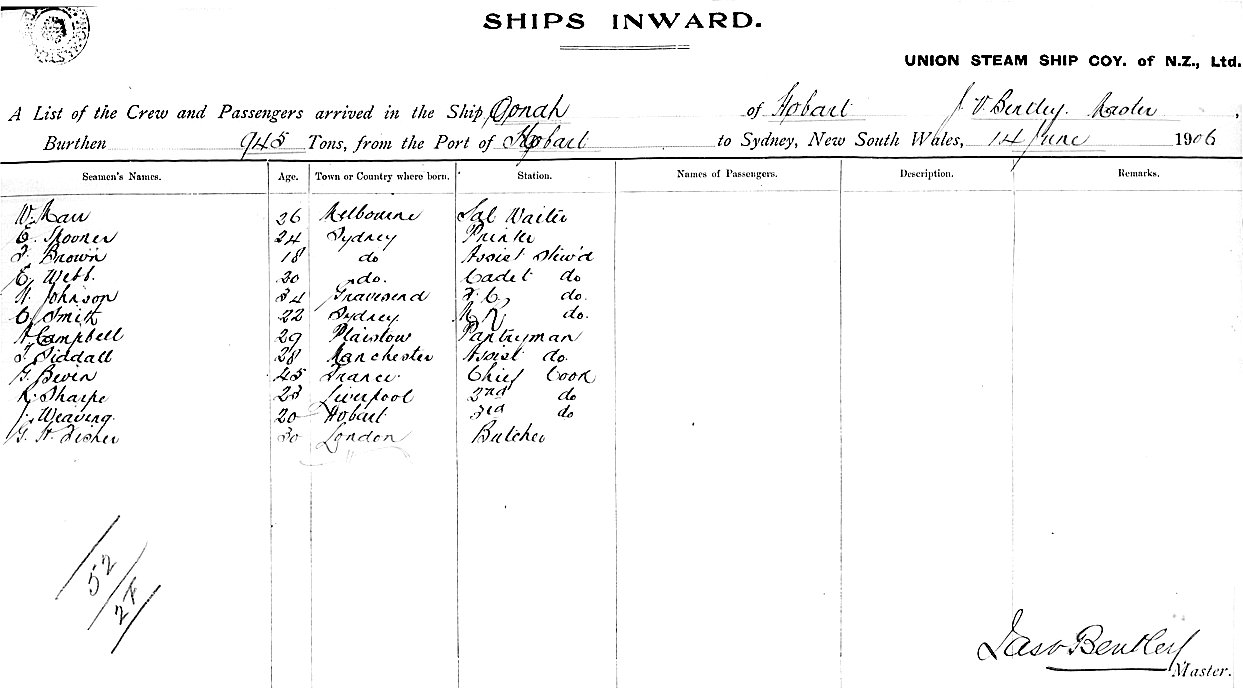 SHIPS INWARD.
UNION STEAM SHIP COY. of N.Z., Ltd.
A List of the Crew and Passengers arrived in the Ship Oonah of Hobart J. V. Bentley. Master,
Burthen 945 Tons, from the Port of Hobart to Sydney, New South Wales, 14 June 1906
Seamen's Names. Age. Town or Country where born. Station. Names of Passengers. Description. Remarks.
W. 26 Melbourne Sal Waiter
E. Spooner 24 Sydney
Brown 18 do Assist Stew'd
E. Webb. do. Cadet do
Johnson 34 Gravesend F. C, do.
C. Smith 22 Sydney do.
Campbell 29 Plaistow Pantryman
Siddall 28 Manchester Assist do.
G. Bevin 45 France Chief Cook
Sharpe 23 Liverpool 2nd do
J. Weaving. 20 Hobart 3rd do
G. H. Fisher 30 London Butcher
52
27
Jas V Bentley
Master.